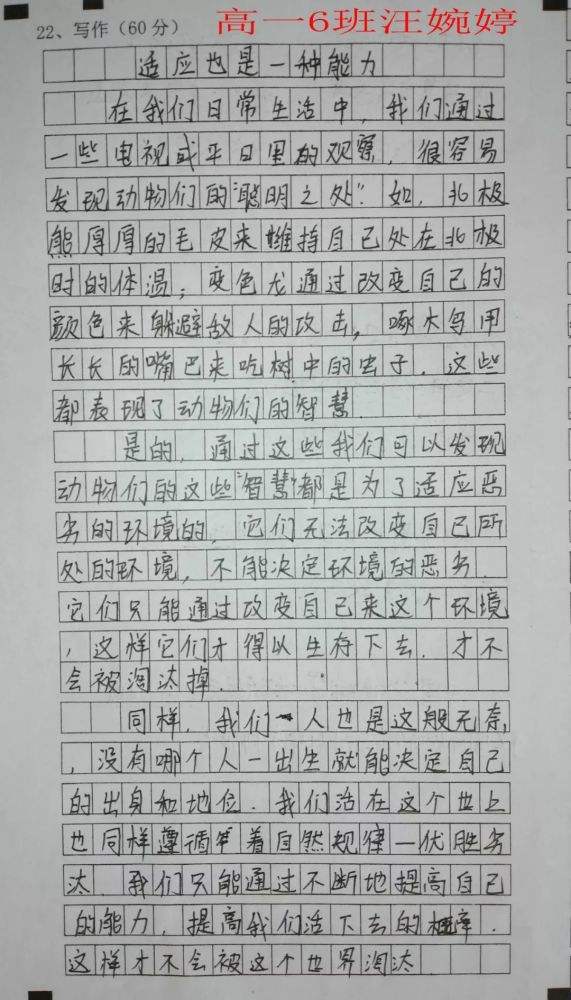 22、写作(60分)
高一6班汪婉婷
适应也是一种能力
在我们日常生活中,我们通过
一些电视或平日里的观察,很容易
发现动物们的"聪明之处"。如,北极
熊厚厚的毛皮来维持自己处在北极
时的体温;变色龙通过改变自己的
颜色来躲避敌人的攻击,啄木鸟用
长长的嘴巴来吃树中的虫子.这些
都表现了动物们的智慧.
是的,通过这些我们可以发现
动物们的这些"智慧"都是为了适应恶
劣的环境的,它们无法改变自己所
处的环境,不能决定环境的恶劣.
它们只能通过改变自己来这个环境
,这样它们才得以生存下去.才不
会被淘汰掉.
同样,我们人也是这般无奈
,没有哪个人一出生就能决定自己
的出身和地位.我们活在这个世上
也同样遵循着自然规律一优胜劣
汰.我们只能通过不断地提高自己
的能力,提高我们活下去的概率.
这样才不会被这个世界淘汰.